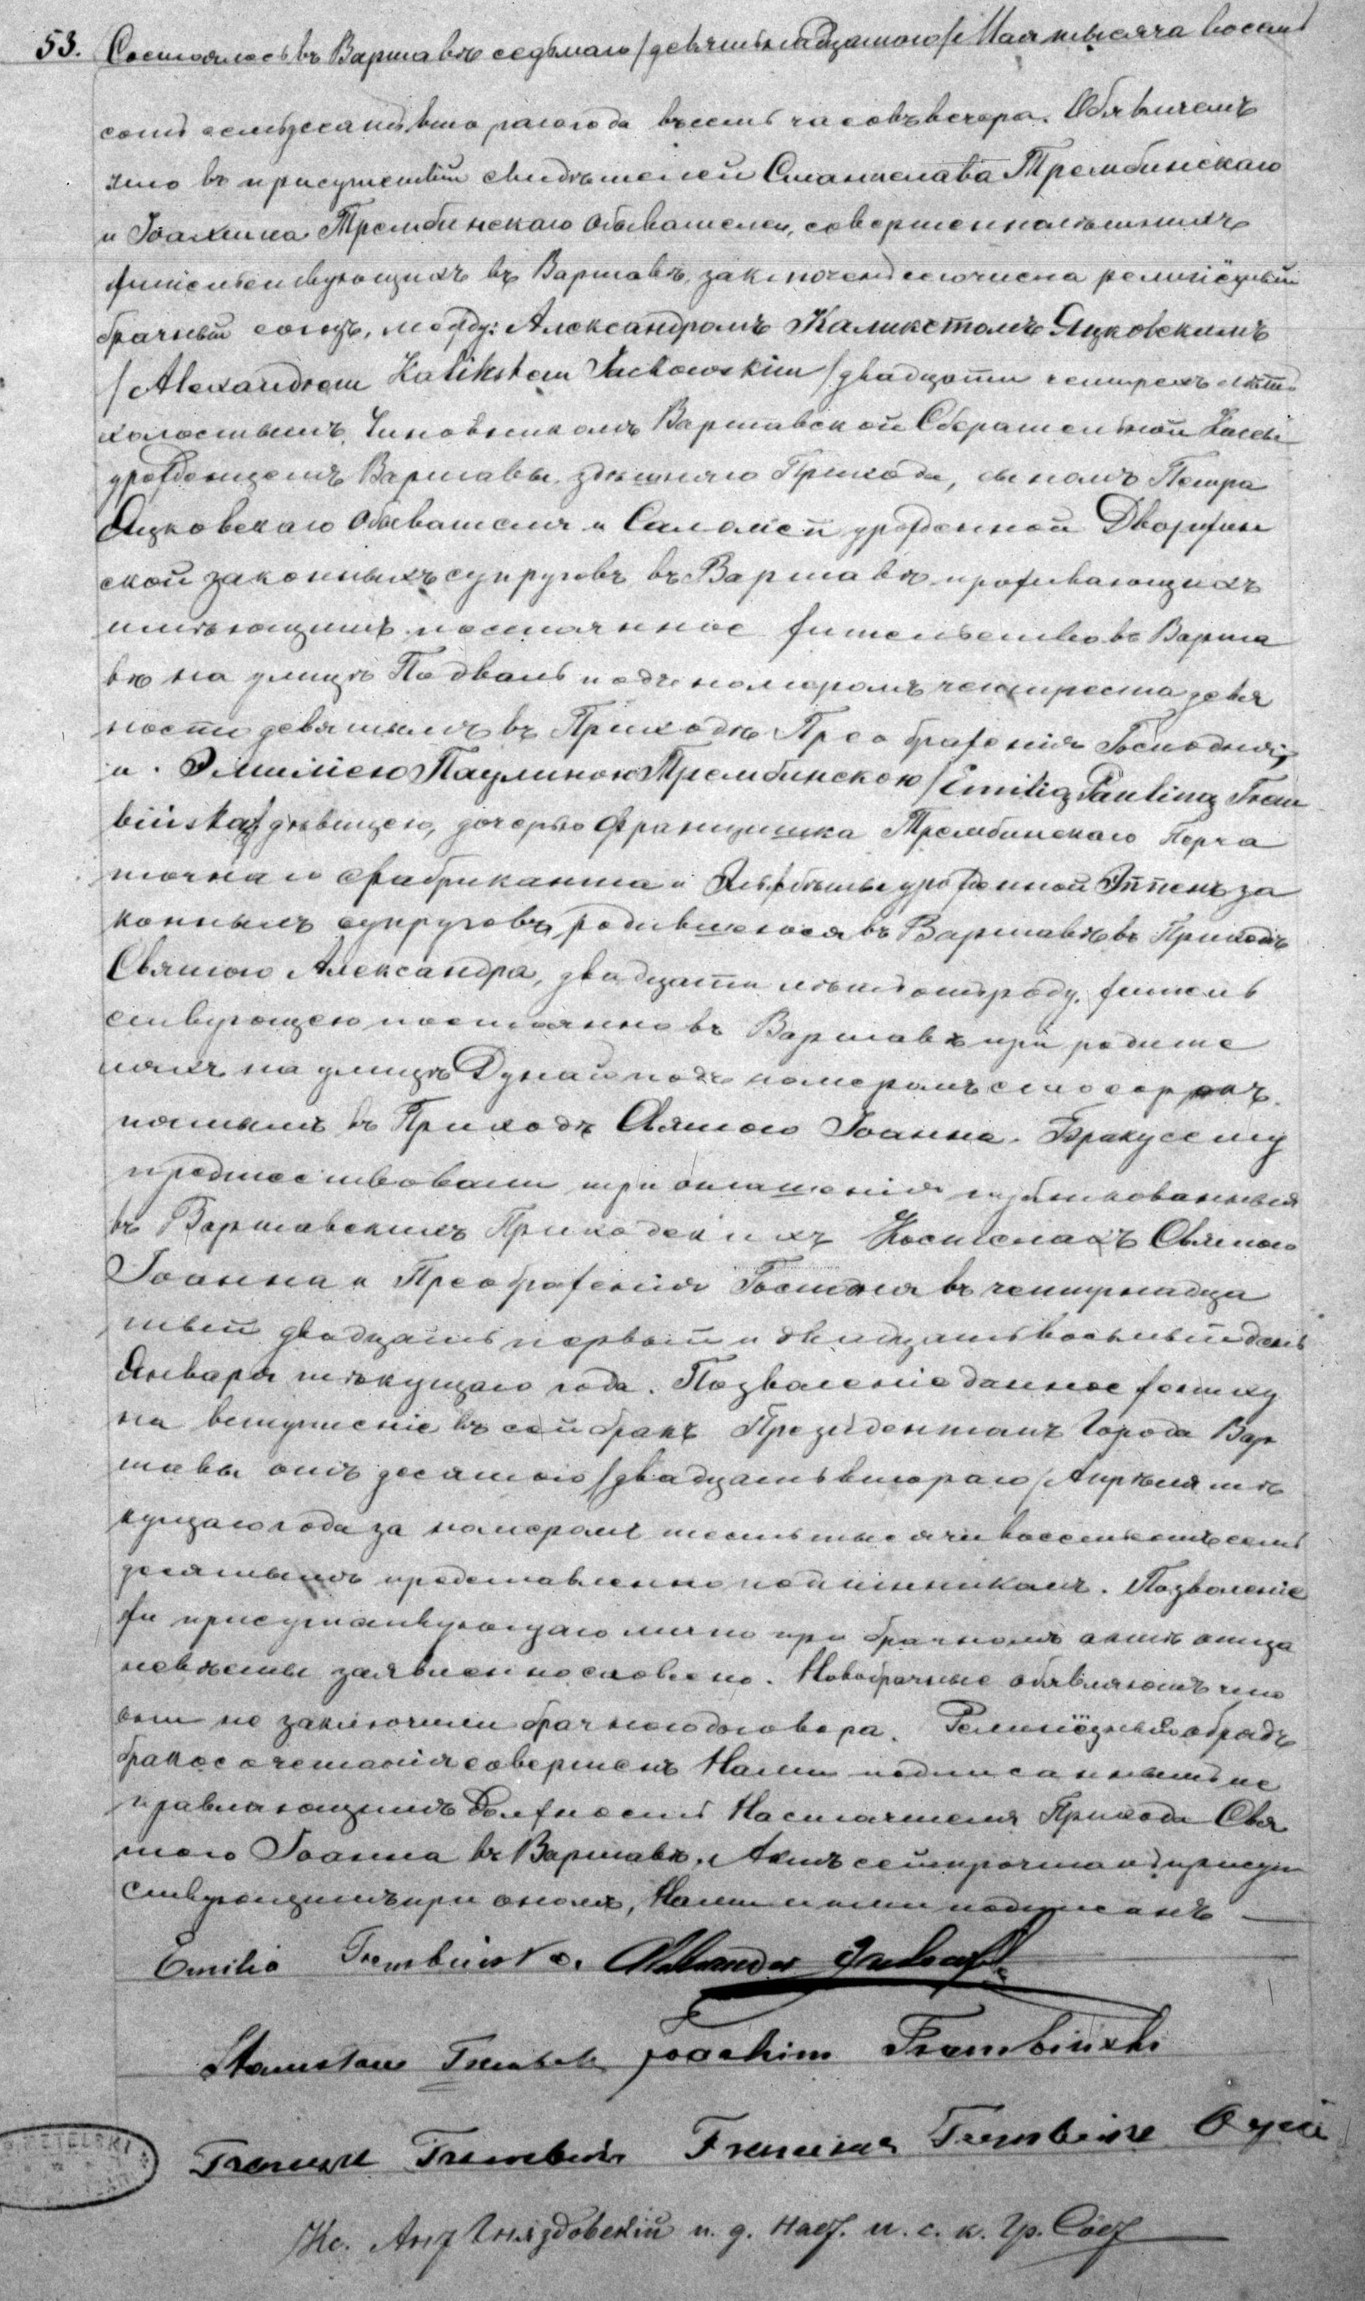 53. Состоялось въ Варшавѣ седьмаго /девятнадцатаго/ Мая тысяча восемь
сотъ семьдесятъ втораго года въ семь часовъ вечера. Объявляемъ
что въ присутствіи свидѣтелей Станислава Трембинскаго
и Іоахима Трембинскаго обывателей, совершеннолѣтнихъ
жительствующихъ въ Варшавѣ, заключенъ сего числа религіозный
брачный союзъ, между: Александромъ Каликстомъ Яцковскимъ
/Alexandrem Kalikstem Jackowskim/ двадцати четырехъ лѣтъ
холостымъ, Чиновникомъ Варшавской Сберегательной Кассы
урожденцемъ Варшавы здѣшняго Прихода, сыномъ Петра
Яцковскаго обывателя и Саломеи урожденной Дворжин
ской законныхъ супруговъ въ Варшавѣ проживающихъ
имѣющимъ постоянное жительство въ Варша
вѣ на улицѣ Подваль подъ номеромъ четыреста девя
носто девятымъ въ Приходѣ Преображенія Господня;
и Эмиліею Паулиною Трембинскою /Emilią Pauliną Trem
bińską/ дѣвицею, дочерью Францишка Трембинскаго Перча
точнаго фабриканта и Эльжбѣты урожденной Эппенъ за
конныхъ супруговъ, родившеюся въ Варшавѣ въ Приходѣ
Святаго Александра, двадцати лѣтъ отъ роду, житель
ствующею постоянно въ Варшавѣ при родите
ляхъ на улицѣ Дунай подъ номеромъ сто сорокъ
въ Приходѣ Святаго Іоанна. Браку сему
предшествовали три оглашенія публикованныя
въ Варшавскихъ Приходскихъ Костелахъ Святаго
Іоанна и Преображенія Господня въ четырнадца
тый двадцать первый и двадцать восьмый день
Января текущаго года. Позволеніе данное жениху
на вступленіе въ сей бракъ Президентомъ Города Вар
шавы отъ десятаго /двадцать втораго/ Апрѣля те
кущаго года за номеромъ шесть тысячи восемьсотъ семь
десятымъ представлено подлинникомъ. Позволеніе
же присутствующаго лично при брачномъ актѣ отца
невѣсты заявлено словесно. Новобрачные объявляютъ что
они не заключили брачнаго договора. Религіозный обрядъ
бракосочетанія совершенъ Нами подписаннымъ ис
правляющимъ Должность Настоятеля Прихода Свя
таго Іоанна въ Варшавѣ. Актъ сей прочтанъ присут
ствующимъ при ономъ, Нами и ими подписанъ —
Emilia Trembińska. Alexander Jackowski
Stanisław Joachim Trembiński
Trembiński Trembiński Ojciec
Кс. Анд. Гняздовскій и. д. Наст. и. с. к. Гр. Сост